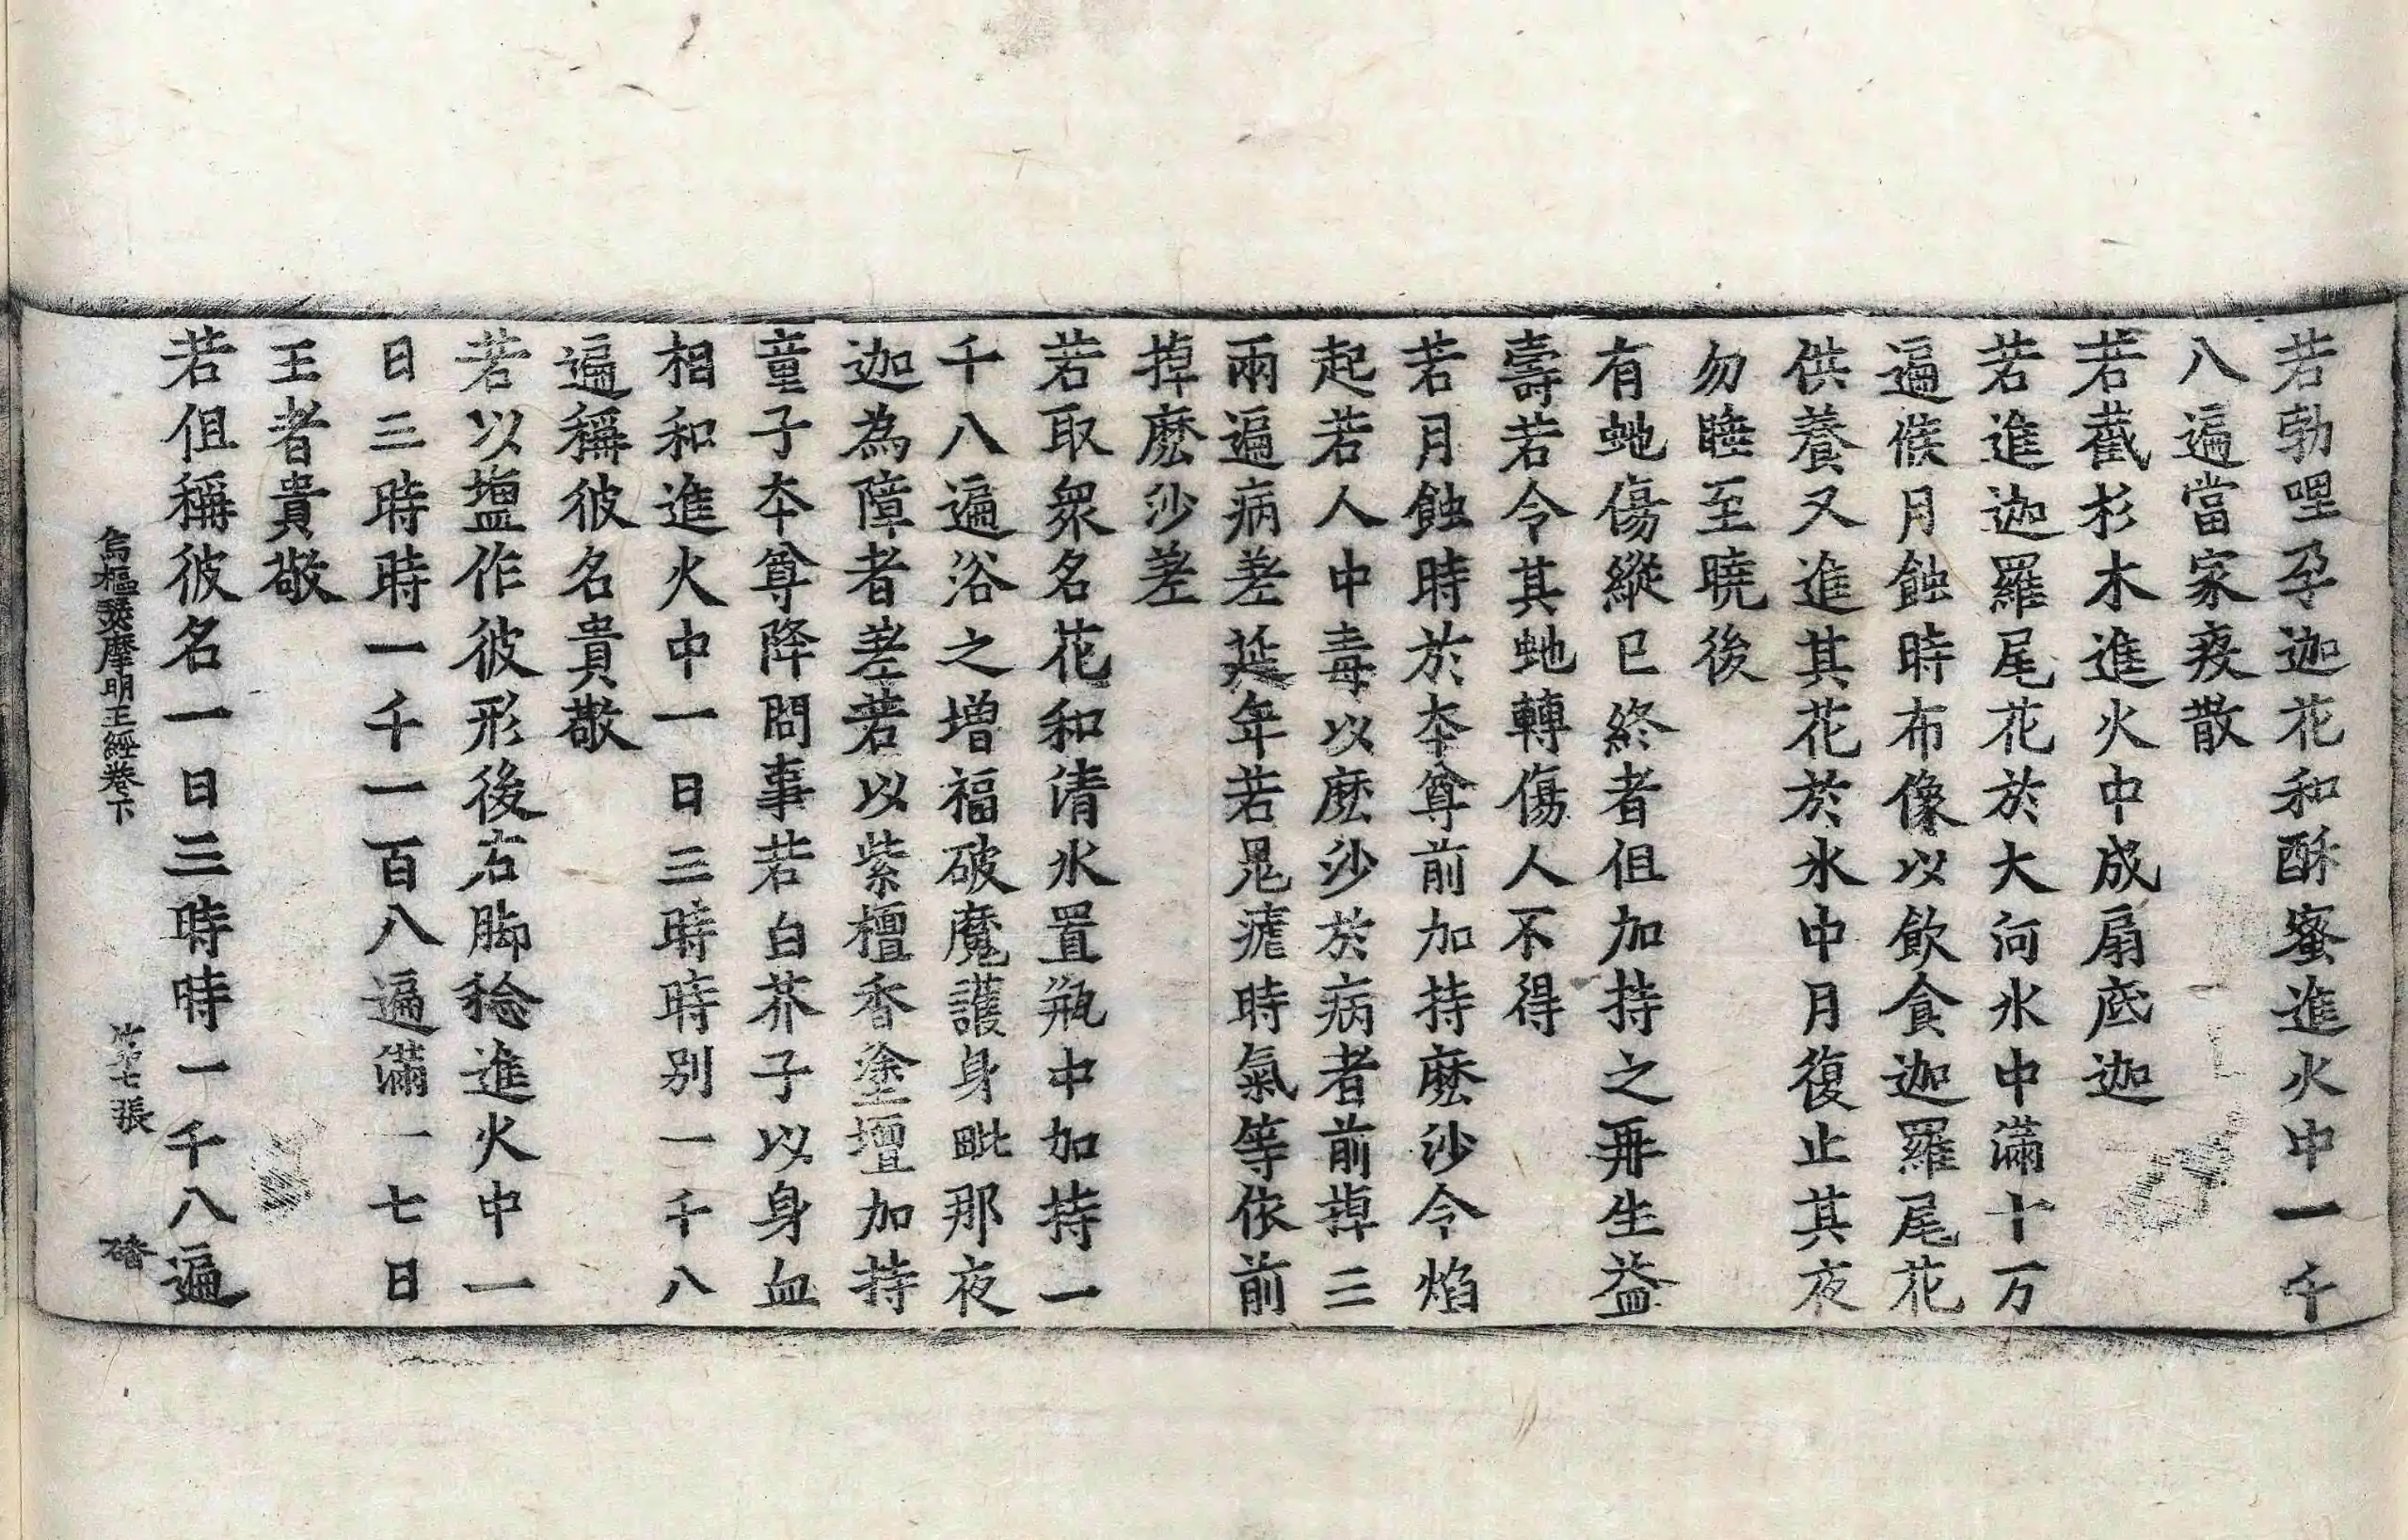 若勃哩孕迦花和酥蜜進火中一千
八遍當家疫散
若截杉木進火中成扇底迦
若進迦羅尾花於大河水中滿十万
遍候月蝕時布像以飲食迦羅尾花
供養又進其花於水中月復止其夜
勿睡至曉後
有虵傷縱已終者但加持之再生益
壽若令其虵轉傷人不得
若月蝕時於本尊前加持麽沙令焰
起若人中毒以麽沙於病者前掉三
兩遍病差延年若鬼瘧時氣等依前
掉麽沙差
若取衆名花和清水置瓶中加持一
千八遍浴之增福破魔護身毗那夜
迦為障者差若以紫檀香塗壇加持
童子本尊降問事若白芥子以身血
相和進火中一日三時時別一千八
遍稱彼名貴敬
若以塩作彼形後右脚稔進火中一
日三時時一千一百八遍滿一七日
王者貴敬
若但稱彼名一日三時時一千八遍
烏樞瑟摩明王經卷下 第七張 磻